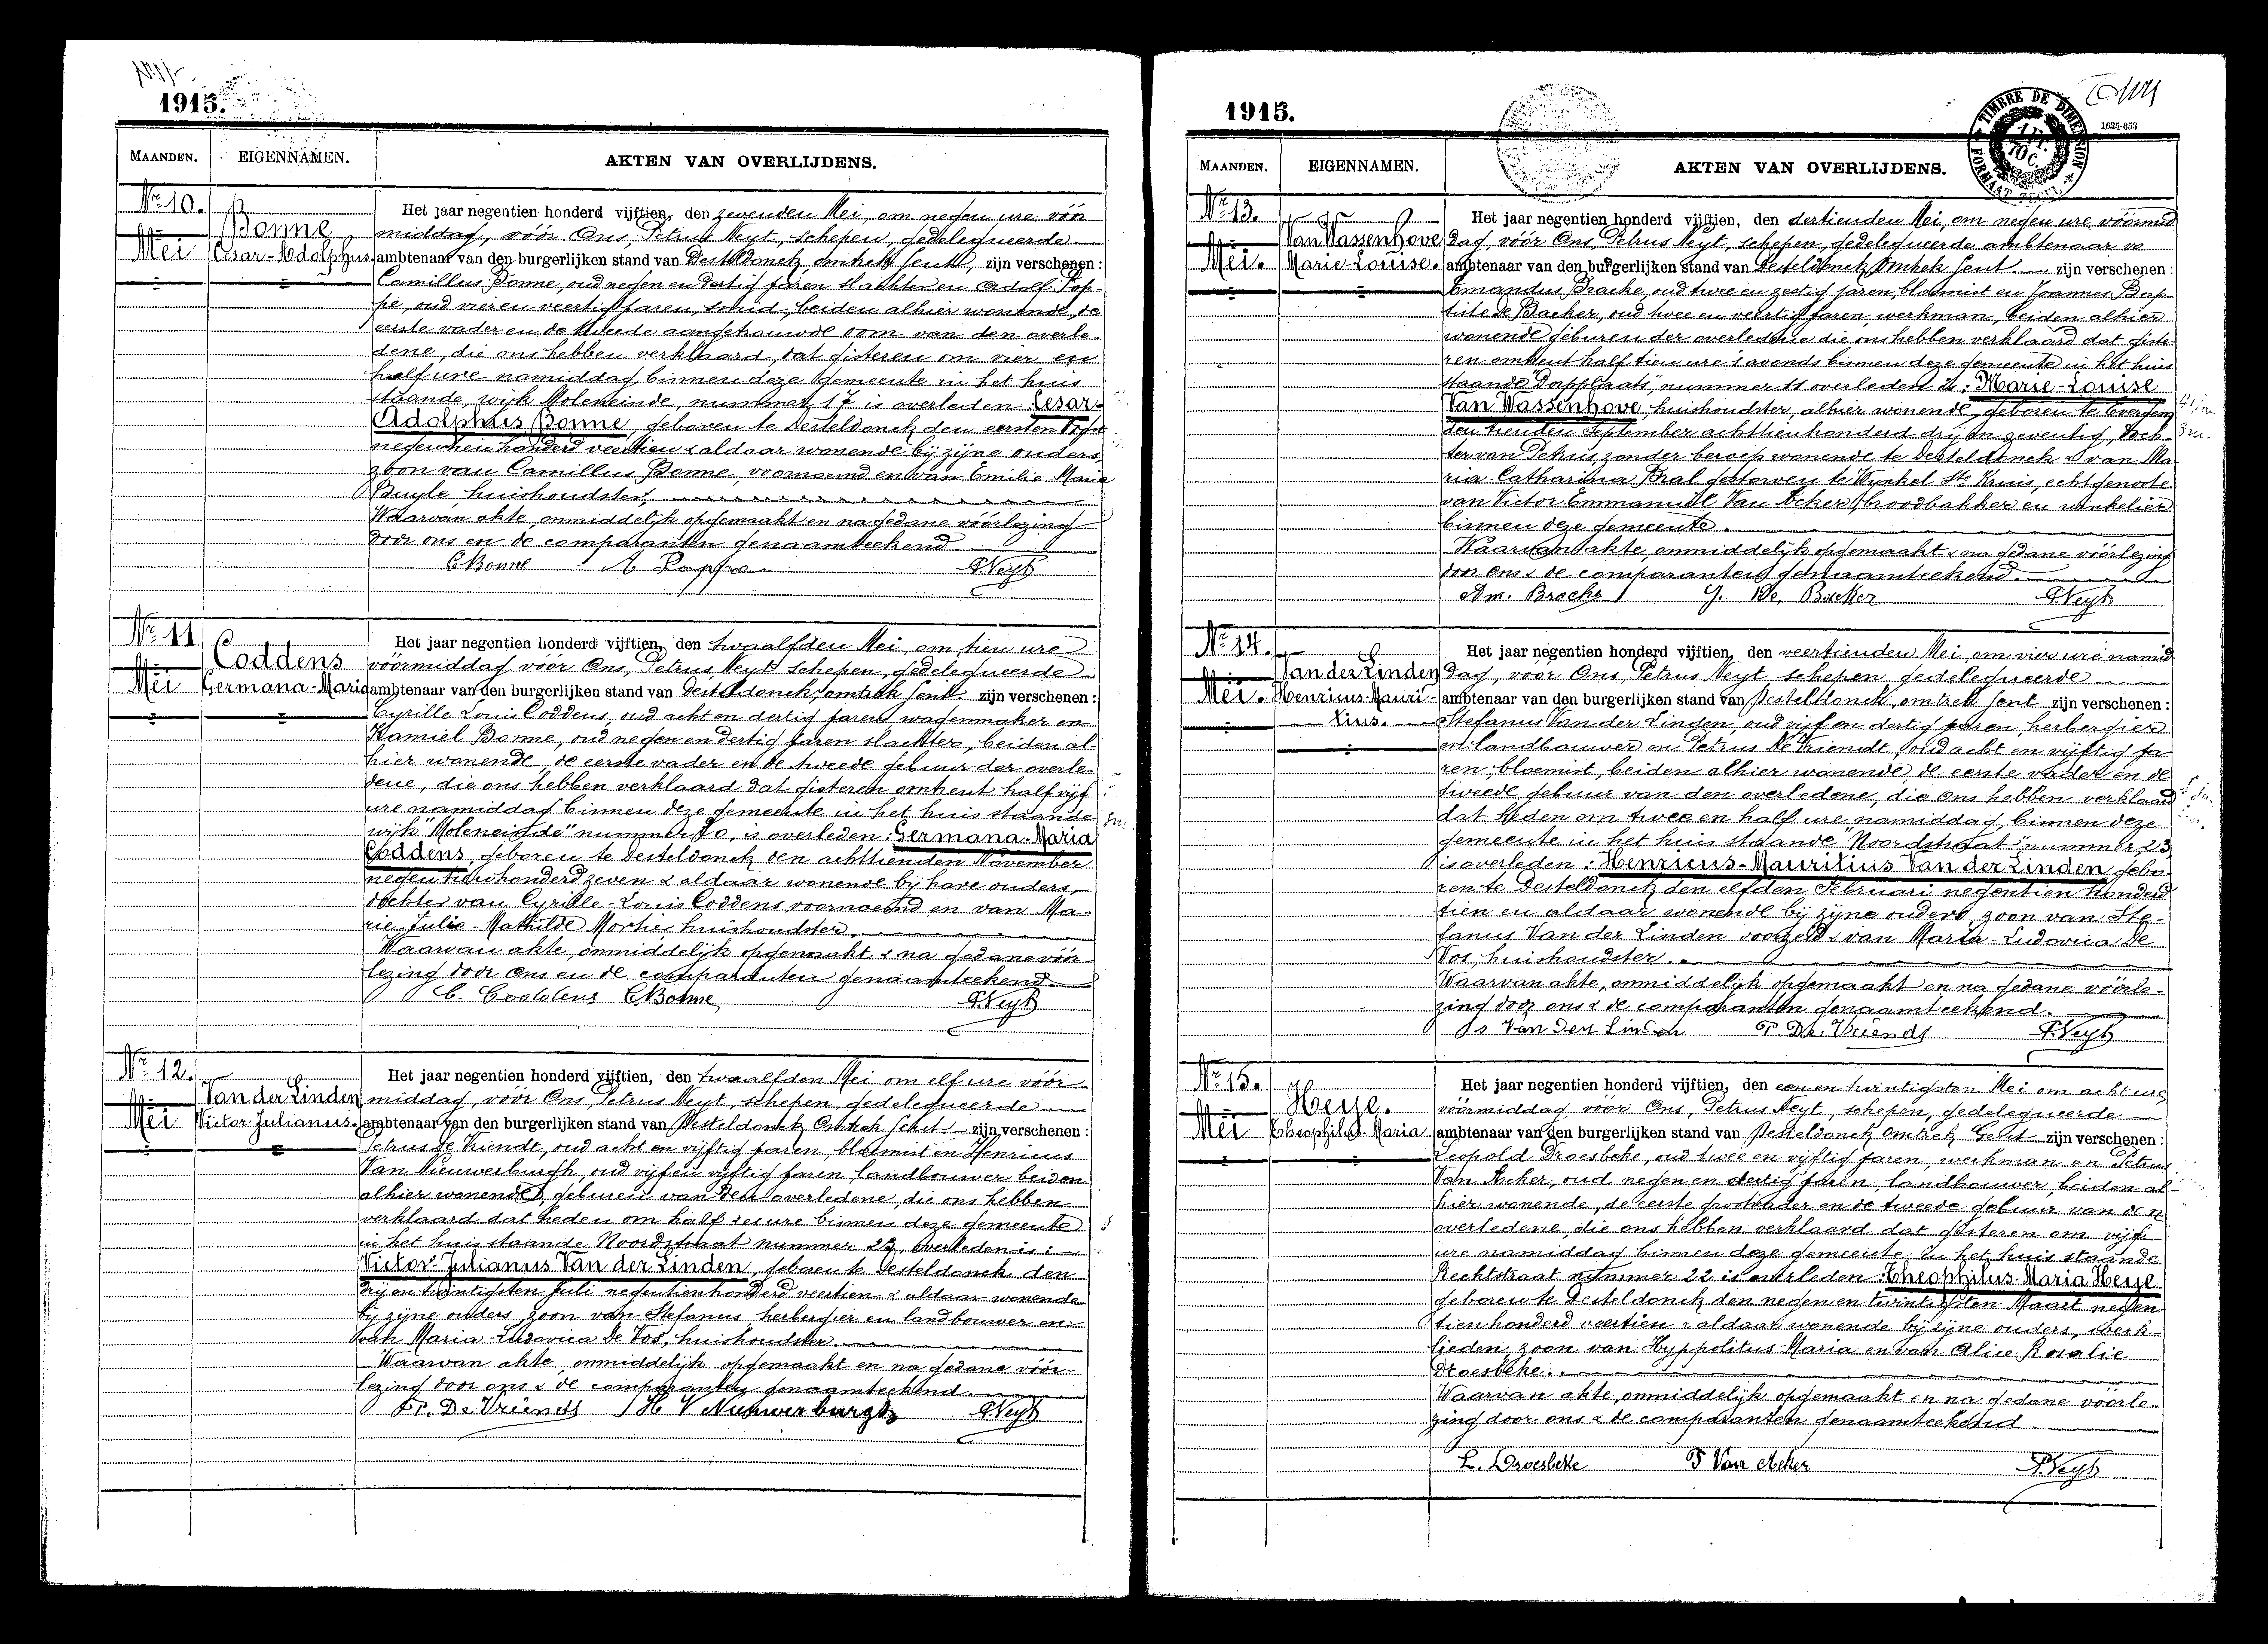 1915.
MAANDEN.
EIGENNAMEN.
AKTEN VAN OVERLIJDENS.
Nr. 10.
Mei
Bonne
Cesar-Adolphus
Het jaar negentien honderd vijftien, den zevenden Mei, om negen ure vóór
middag, vóór Ons, Petrus Neyt, schepen, gedelegueerde
ambtenaar van den burgerlijken stand van Desteldonck, omtrek Gent, zijn verschenen :
Camillus Bonne, oud negen en dertig jaren slachter en Adolf Pop-
pe, oud vier en veertig jaren, smid, beiden alhier wonende de
eerste vader en de tweede aangetrouwde oom van den overle-
dene, die ons hebben verklaard, dat gisteren om vier en
half ure namiddag, binnen deze gemeente in het huis
staande, wijk Moleneinde, nummer 17 is overleden Cesar-
Adolphus Bonne, geboren te Desteldonck den eersten
negentien honderd veertien & aldaar wonende bij zijne ouders
zoon van Camillus Bonne, voornoemd en van Emilie Marie
Buyle, huishoudster,
Waarvan akte, onmiddelijk opgemaakt en na gedane vóórlezing
door ons en de comparanten genaamteekend.
C Bonne A Poppe P Neyt
Nr. 11
Mei
Coddens
Germana-Maria
Het jaar negentien honderd vijftien, den twaalfden Mei, om tien ure
vóórmiddag vóór Ons, Petrus Neyt schepen, gedelegueerde
ambtenaar van den burgerlijken stand van Desteldonck, omtrek Gent zijn verschenen :
Cyrille Louis Coddens, oud acht en dertig jaren wagenmaker en
Kamiel Bonne, oud negen en dertig jaren slachter, beiden al-
hier wonende, de eerste vader en de tweede gebuur der overle-
dene, die ons hebben verklaard dat gisteren omtrent half vijf
ure namiddag binnen deze gemeente in het huis staande
wijk "Moleneinde" nummer, is overleden : Germana-Maria
Coddens, geboren te Desteldonck den achttienden November
negentienhonderd zeven & aldaar wonende bij hare ouders,
dochter van Cyrille-Louis Coddens voornoemd en van Ma-
rie-Julie-Mathilde Mortier huishoudster.
Waarvan akte, onmiddelijk opgemaakt & na gedane vóór-
lezing door Ons en de comparanten genaamteekend.
C. Coddens C Bonne P Neyt
Nr. 12.
Mei
Van der Linden
Victor Julianus.
Het jaar negentien honderd vijftien, den twaalfden Mei om elf ure vóór
middag, vóór Ons Petrus Neyt, schepen, gedelegueerde
ambtenaar van den burgerlijken stand van Desteldonck Omtrek Gent zijn verschenen :
Petrus de Vriendt, oud acht en vijftig jaren, bloemist en Henricus
Van Nieuwerburgh, oud vijf en vijftig jaren landbouwer beiden
alhier wonende, geburen van den overledene, die ons hebben
verklaard dat heden om half zes ure binnen deze gemeente
in het huis staande Noordstraat nummer 23, overleden is :
Victor-Julianus Van der Linden, geboren te Desteldonck den
drij en twintigsten Juli negentienhonderd veertien & aldaar wonende
bij zijne ouders, zoon van Stefanus herbergier en landbouwer en
van Maria Ludovica de Vos, huishoudster.
Waarvan akte, onmiddelijk opgemaakt en na gedane vóór-
lezing door ons & de comparanten genaamteekend.
P. De Vriendt H V Nieuwerburgh P Neyt
1915.
1635-653
TIMBRE DE DIMENSION
MAANDEN.
EIGENNAMEN.
AKTEN VAN OVERLIJDENS.
Nr. 13.
Mei.
Van Wassenhove
Marie-Louise.
Het jaar negentien honderd vijftien, den dertienden Mei, om negen ure vóórmid
dag, vóór Ons, Petrus Neyt, schepen, gedelegueerde ambtenaar
ambtenaar van den burgerlijken stand van Desteldonck Omtrek Gent. zijn verschenen :
Amandus Bracke, oud twee en zestig jaren, bloemist en Joannes Bap-
tiste de Backer, oud twee en veertig jaren, werkman, beiden alhier
wonende geburen der overledene die ons hebben verklaard dat giste-
ren omtrent half tien ure 's avonds binnen deze gemeente in het huis
staande "Dorpplaats" nummer 11 overleden is : Marie-Louise
Van Wassenhove huishoudster, alhier wonende, geboren te Evergem
den tienden September achttienhonderd drij en zeventig, doch-
ter van Petrus zonder beroep wonende te Desteldonck & van Ma
ria Catharina Bral gestorven te Wynkel Ste Kruis, echtgenoote
van Victor Emmanuël Van Acker, broodbakker en winkelier
binnen deze gemeente.
Waarvan akte onmiddelijk opgemaakt & na gedane vóórlezing
door ons & de comparanten genaamteekend.
Am. Bracke J. De Backer P Neyt
Nr. 14.
Mei.
Van der Linden
Henricus-Mauri-
tius.
Het jaar negentien honderd vijftien, den veertienden Mei, om vier ure namid
dag, vóór Ons, Petrus Neyt schepen gedelegueerde
ambtenaar van den burgerlijken stand van Desteldonck, omtrek Gent zijn verschenen :
Stefanus Van der Linden, oud vijf en dertig jaren, herbergier
en landbouwer en Petrus De Vriendt, oud acht en vijftig ja-
ren, bloemist, beiden alhier wonende, de eerste vader en de
tweede gebuur van den overledene, die Ons hebben verklaard
dat heden om twee en half ure namiddag, binnen deze
gemeente in het huis staande "Noordstraat" nummer 23
is overleden : Henricus-Mauritius Van der Linden, gebo-
ren te Desteldonck den elfden Februari negentien honderd
tien en aldaar wonende bij zijne ouders, zoon van Ste-
fanus Van der Linden voorzeid & van Maria-Ludovica de
Vos, huishoudster.
Waarvan akte, onmiddelijk opgemaakt en na gedane vóórle-
zing door ons & de comparanten genaamteekend.
S Van Der Linden P. De Vriendt P. Neyt
Nr. 15.
Mei
Heije.
Theophilus-Maria
Het jaar negentien honderd vijftien, den een en twintigsten Mei om acht ure
vóórmiddag vóór Ons, Petrus Neyt, schepen, gedelegueerde
ambtenaar van den burgerlijken stand van Desteldonck Omtrek Gent zijn verschenen :
Leopold Droesbeke, oud twee en vijftig jaren, werkman en Petrus
Van Acker, oud negen en dertig jaren, landbouwer, beiden al-
hier wonende, de eerste grootvader en de tweede gebuur van den
overledene, die ons hebben verklaard dat gisteren om vijf
ure namiddag binnen deze gemeente in het huis staande
Rechtstraat nummer 22 is overleden : Theophilus-Maria Heije
geboren te Desteldonck den negen en twintigsten Maart negen
tienhonderd veertien & aldaar wonende bij zijne ouders, werk-
lieden, zoon van Hyppolitus-Maria en van Alice Rosalie
Droesbeke.
Waarvan akte, onmiddelijk opgemaakt en na gedane vóórle-
zing door ons & de comparanten genaamteekend
L. Droesbeke P Van Acker P. Neyt